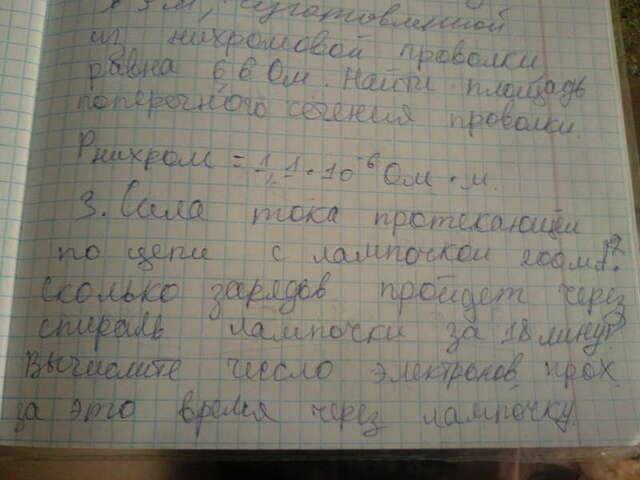 м, изготовленной
из нихромовой проволки
равна 66 Ом. Найти площадь
поперечного сечения проволки.
Рнихром = 1,1 • 10⁻⁶ Ом • м.
3. Сила тока протекающей
по цепи с лампочкой 200мА.
сколько зарядов пройдет через
спираль лампочки за 18 минут?
Вычислите число электронов прох.
за это время через лампочку.